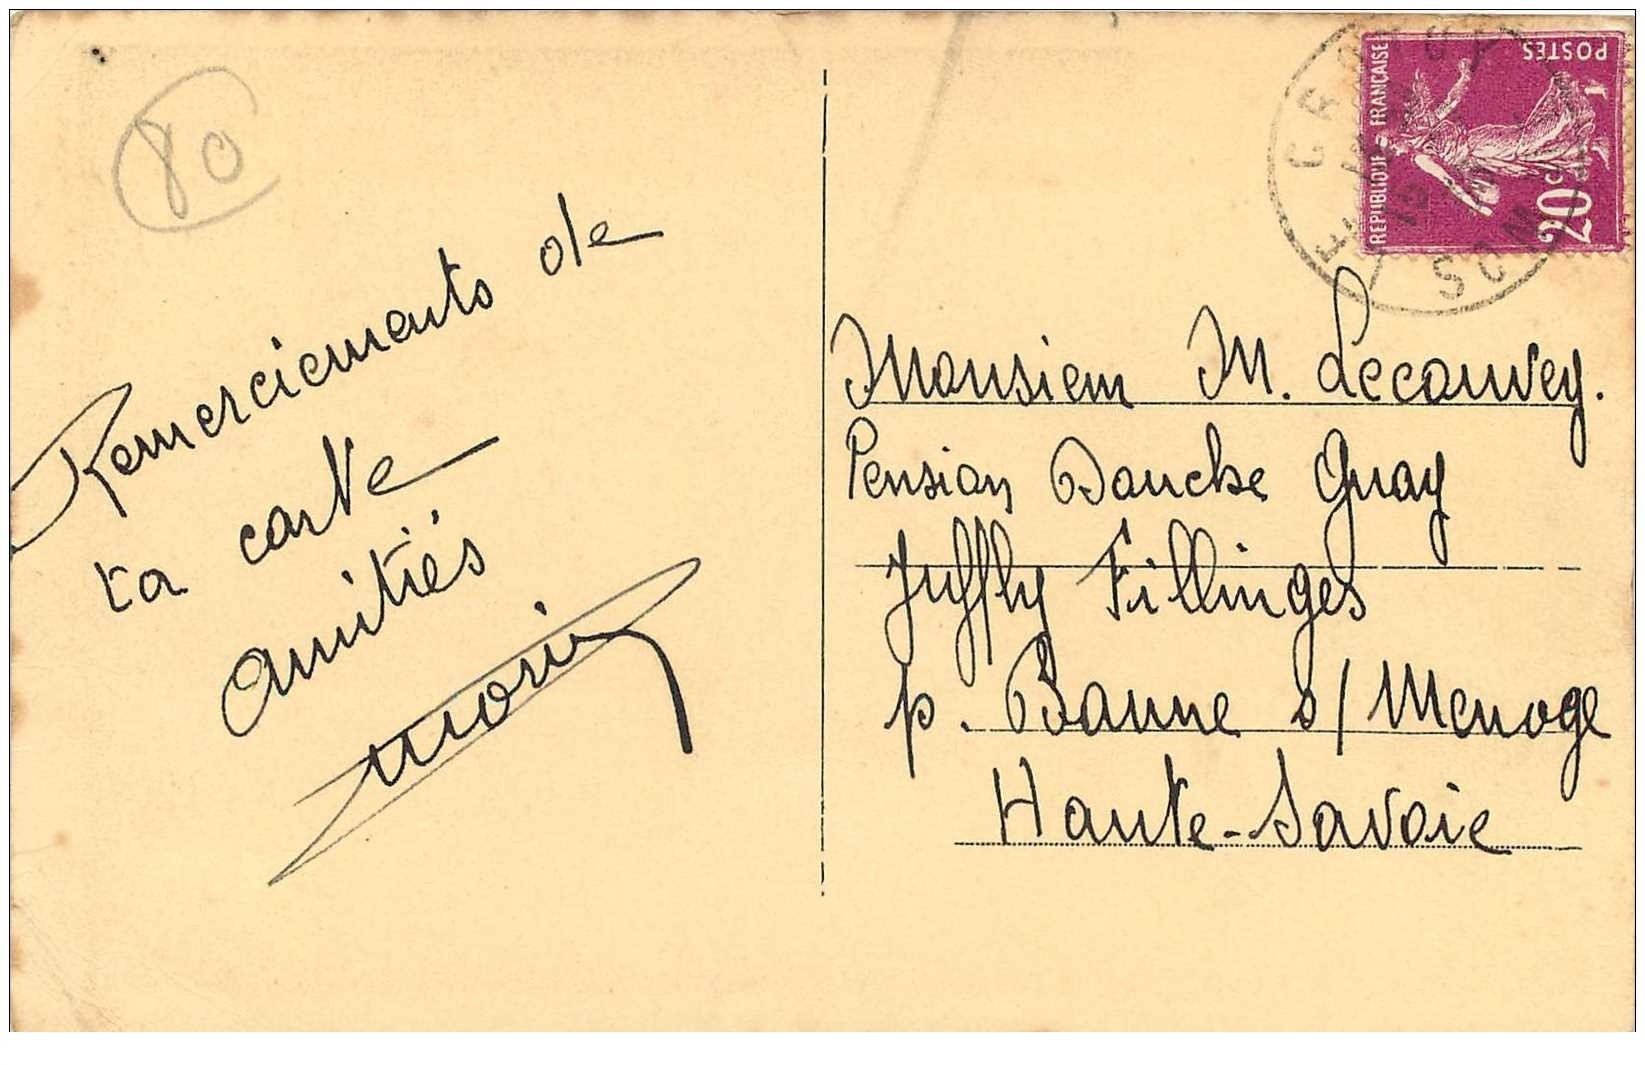 80
Remerciements de
ta carte
Amitiés
Morin
REPUBLIQUE FRANÇAISE
POSTES
20 C
SOMME
Monsieur M. Lecouvey.
Pension Douche Quay
Juffly Fillinges
p. Bonne s/ Menoge
Haute-Savoie